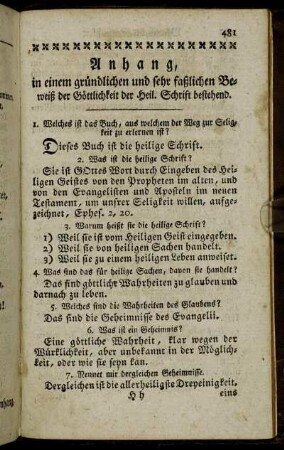 481
Anhang,
in einem gründlichen und sehr faßlichen Be-
weiß der Göttlichkeit der Heil. Schrift bestehend.
1. Welches ist das Buch, aus welchem der Weg zur Selig-
keit zu erlernen ist?
Dieses Buch ist die heilige Schrift.
2. Was ist die heilige Schrift?
Sie ist GOttes Wort durch Eingeben des Hei-
ligen Geistes von den Propheten im alten, und
von den Evangelisten und Aposteln im neuen
Testament, um unsrer Seligkeit willen, aufge-
zeichnet, Ephes. 2, 20.
3. Warum heißt sie die heilige Schrift?
1) Weil sie ist vom Heiligen Geist eingegeben.
2) Weil sie von heiligen Sachen handelt.
3) Weil sie zu einem heiligen Leben anweiset.
4. Was sind das für heilige Sachen, davon sie handelt?
Das sind göttliche Wahrheiten zu glauben und
darnach zu leben.
5. Welches sind die Wahrheiten des Glaubens?
Das sind die Geheimnisse des Evangelii.
6. Was ist ein Geheimnis?
Eine göttliche Wahrheit, klar wegen der
Würklichkeit, aber unbekannt in der Möglich-
keit, oder wie sie seyn kan.
7. Nennet mir dergleichen Geheimnisse.
Dergleichen ist die allerheiligste Dreyeinigkeit,
Hh eins